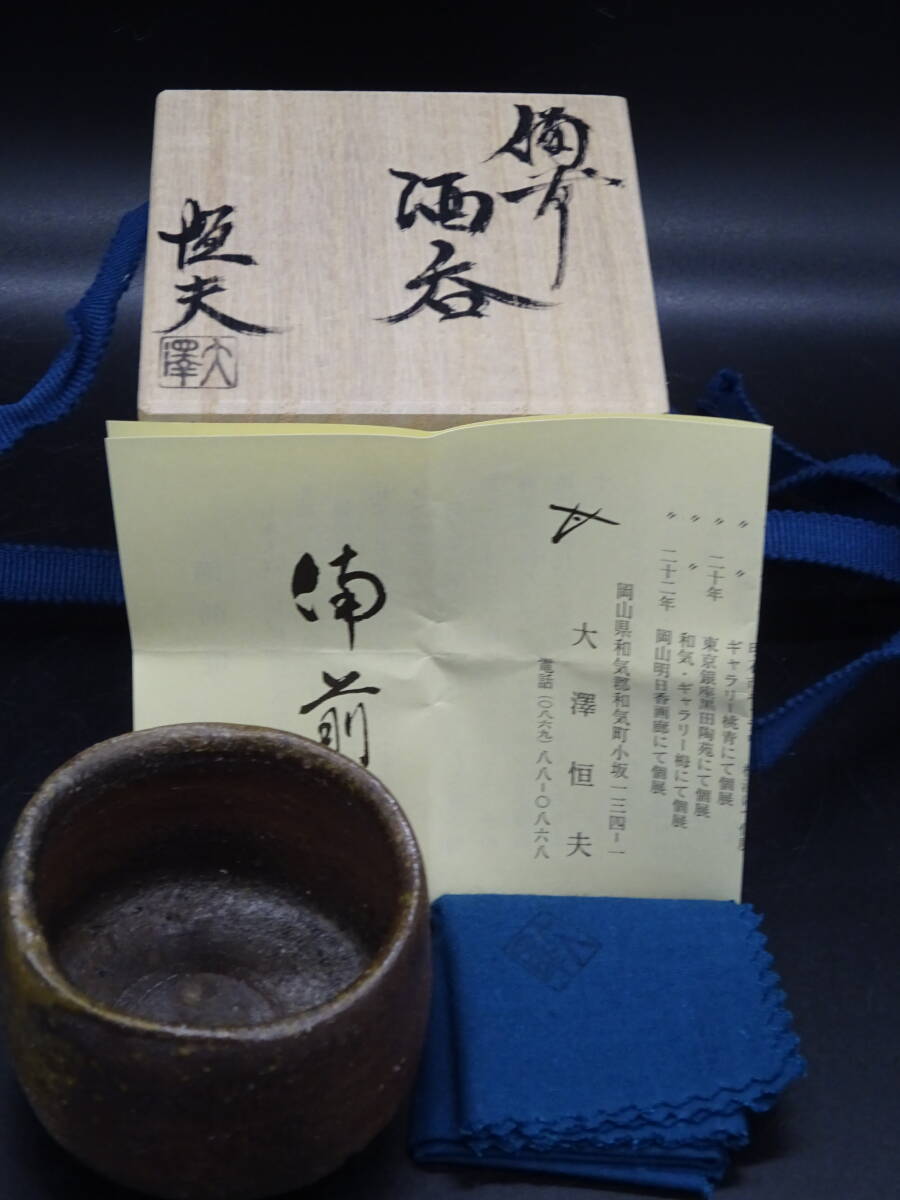 備前
酒呑
恒夫
大澤
〃 〃
ギャラリー桃青にて個展
〃 二十年 東京銀座黒田陶苑にて個展
〃 〃 和気・ギャラリー栂にて個展
〃 二十二年 岡山明日香画廊にて個展
岡山県和気郡和気町小坂一三四ー一
大澤恒夫
電話(〇八六九)八八ー〇八六八
備前